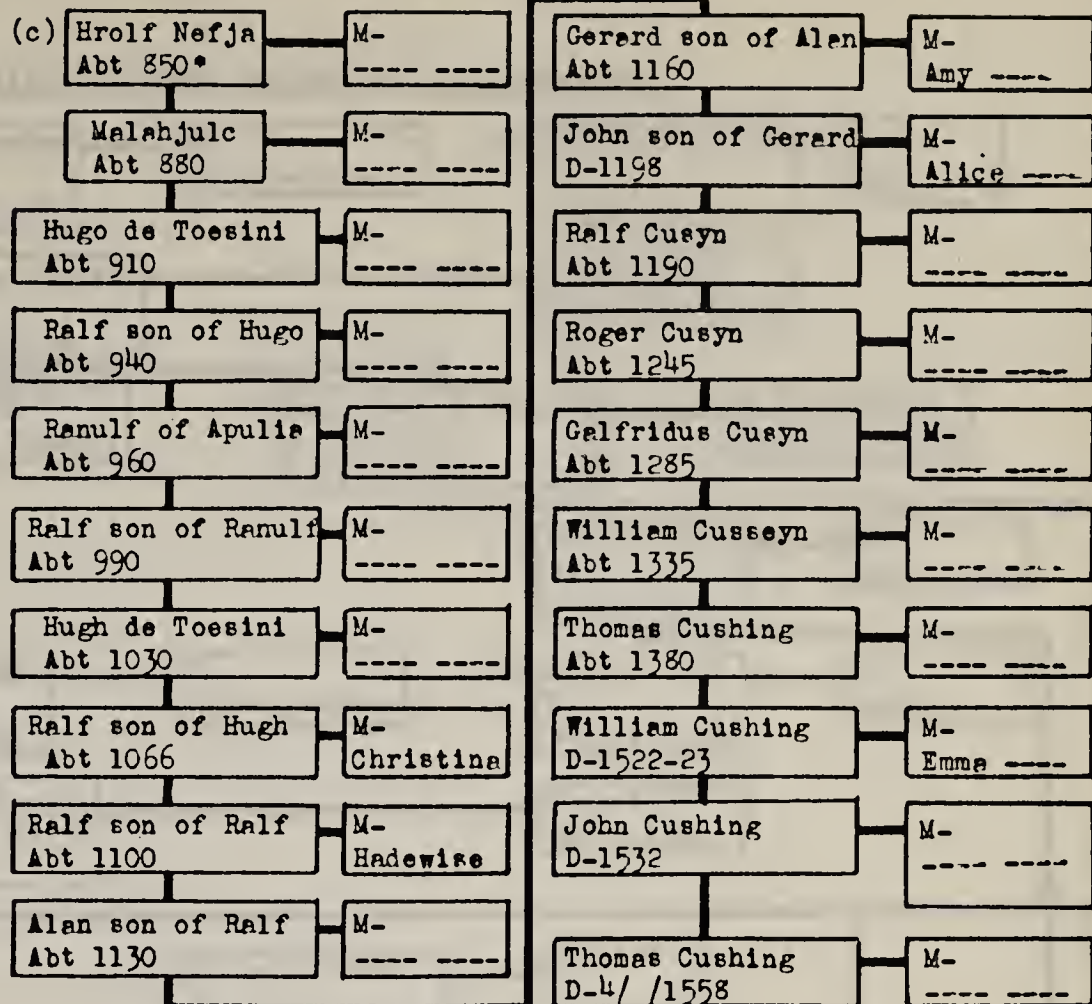 (c) Hrolf Nefja
Abt 850*
M-
---- ----
Malahjulc
Abt 880
M-
---- ----
Hugo de Toesini
Abt 910
M-
---- ----
Ralf son of Hugo
Abt 940
M-
---- ----
Ranulf of Apulia
Abt 960
M-
---- ----
Ralf son of Ranulf
Abt 990
M-
---- ----
Hugh de Toesini
Abt 1030
M-
---- ----
Ralf son of Hugh
Abt 1066
M-
Christina
Ralf son of Ralf
Abt 1100
M-
Hadewise
Alan son of Ralf
Abt 1130
M-
---- ----
Gerard son of Alan
Abt 1160
M-
Amy ----
John son of Gerard
D-1198
M-
Alice ----
Ralf Cusyn
Abt 1190
M-
---- ----
Roger Cusyn
Abt 1245
M-
---- ----
Galfridus Cusyn
Abt 1285
M-
---- ----
William Cusseyn
Abt 1335
M-
---- ----
Thomas Cushing
Abt 1380
M-
---- ----
William Cushing
D-1522-23
M-
Emma ----
John Cushing
D-1532
M-
---- ----
Thomas Cushing
D-4/ /1558
M-
---- ----